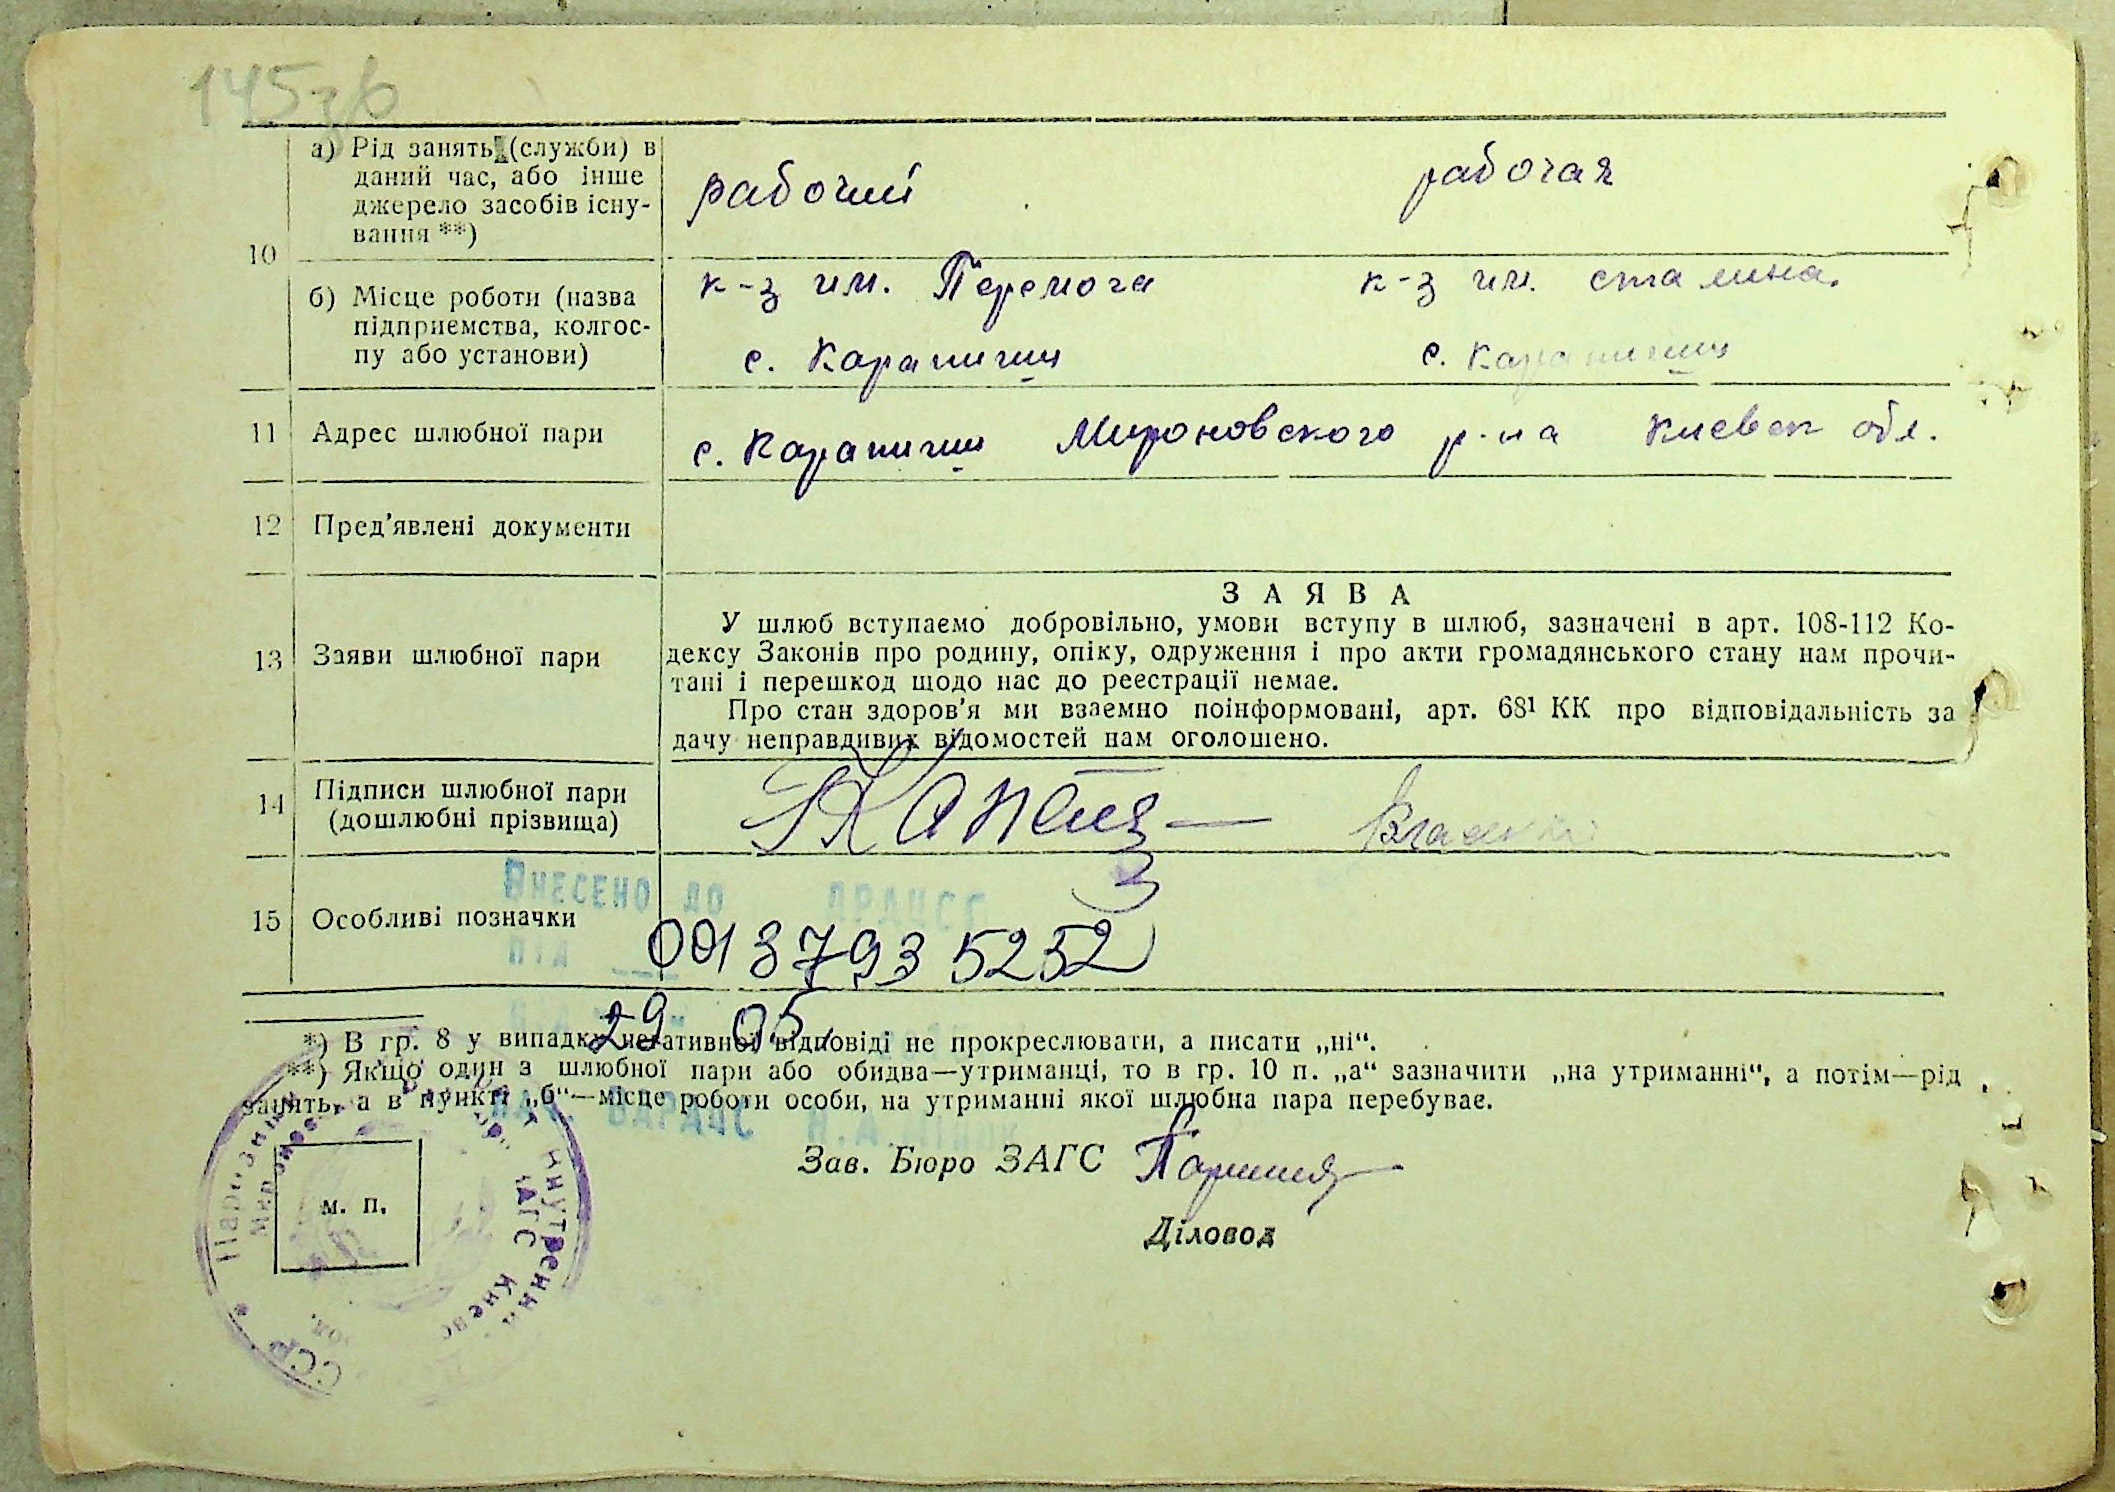 145зв
10
а) Рід занять (служби) в
даний час, або інше
джерело засобів існу-
вання **)
рабочий рабочая
б) Місце роботи (назва
підприємства, колгос-
пу або установи)
к-з им. Перемога к-з им. сталина.
с. Карапиши с. Карапиши
11 Адрес шлюбної пари
с. Карапиши Мироновского р-на Киевск обл.
12 Пред'явлені документи
13 Заяви шлюбної пари
ЗАЯВА
У шлюб вступаємо добровільно, умови вступу в шлюб, зазначені в арт. 108-112 Ко-
дексу Законів про родину, опіку, одруження і про акти громадянського стану нам прочи-
тані і перешкод щодо нас до реєстрації немає.
Про стан здоров'я ми взаємно поінформовані, арт. 68¹ КК про відповідальність за
дачу неправдивих відомостей нам оголошено.
14 Підписи шлюбної пари
(дошлюбні прізвища)
15 Особливі позначки
Внесено до ДРАЦСГ
під
0013793 5252
29 05
*) В гр. 8 у випадку негативної відповіді не прокреслювати, а писати „ні“.
**) Якщо один з шлюбної пари або обидва—утриманці, то в гр. 10 п. „а“ зазначити „на утриманні“, а потім—рід
занять, а в пункті „б“—місце роботи особи, на утриманні якої шлюбна пара перебуває.
Зав. Бюро ЗАГС
Діловод
м. п.
ССР